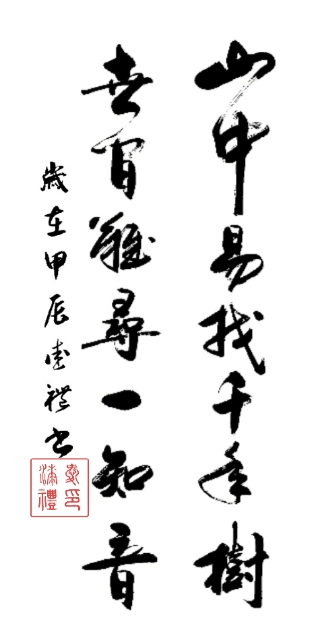 山中易找千年樹
世間難尋一知音
歲在甲辰德禮书